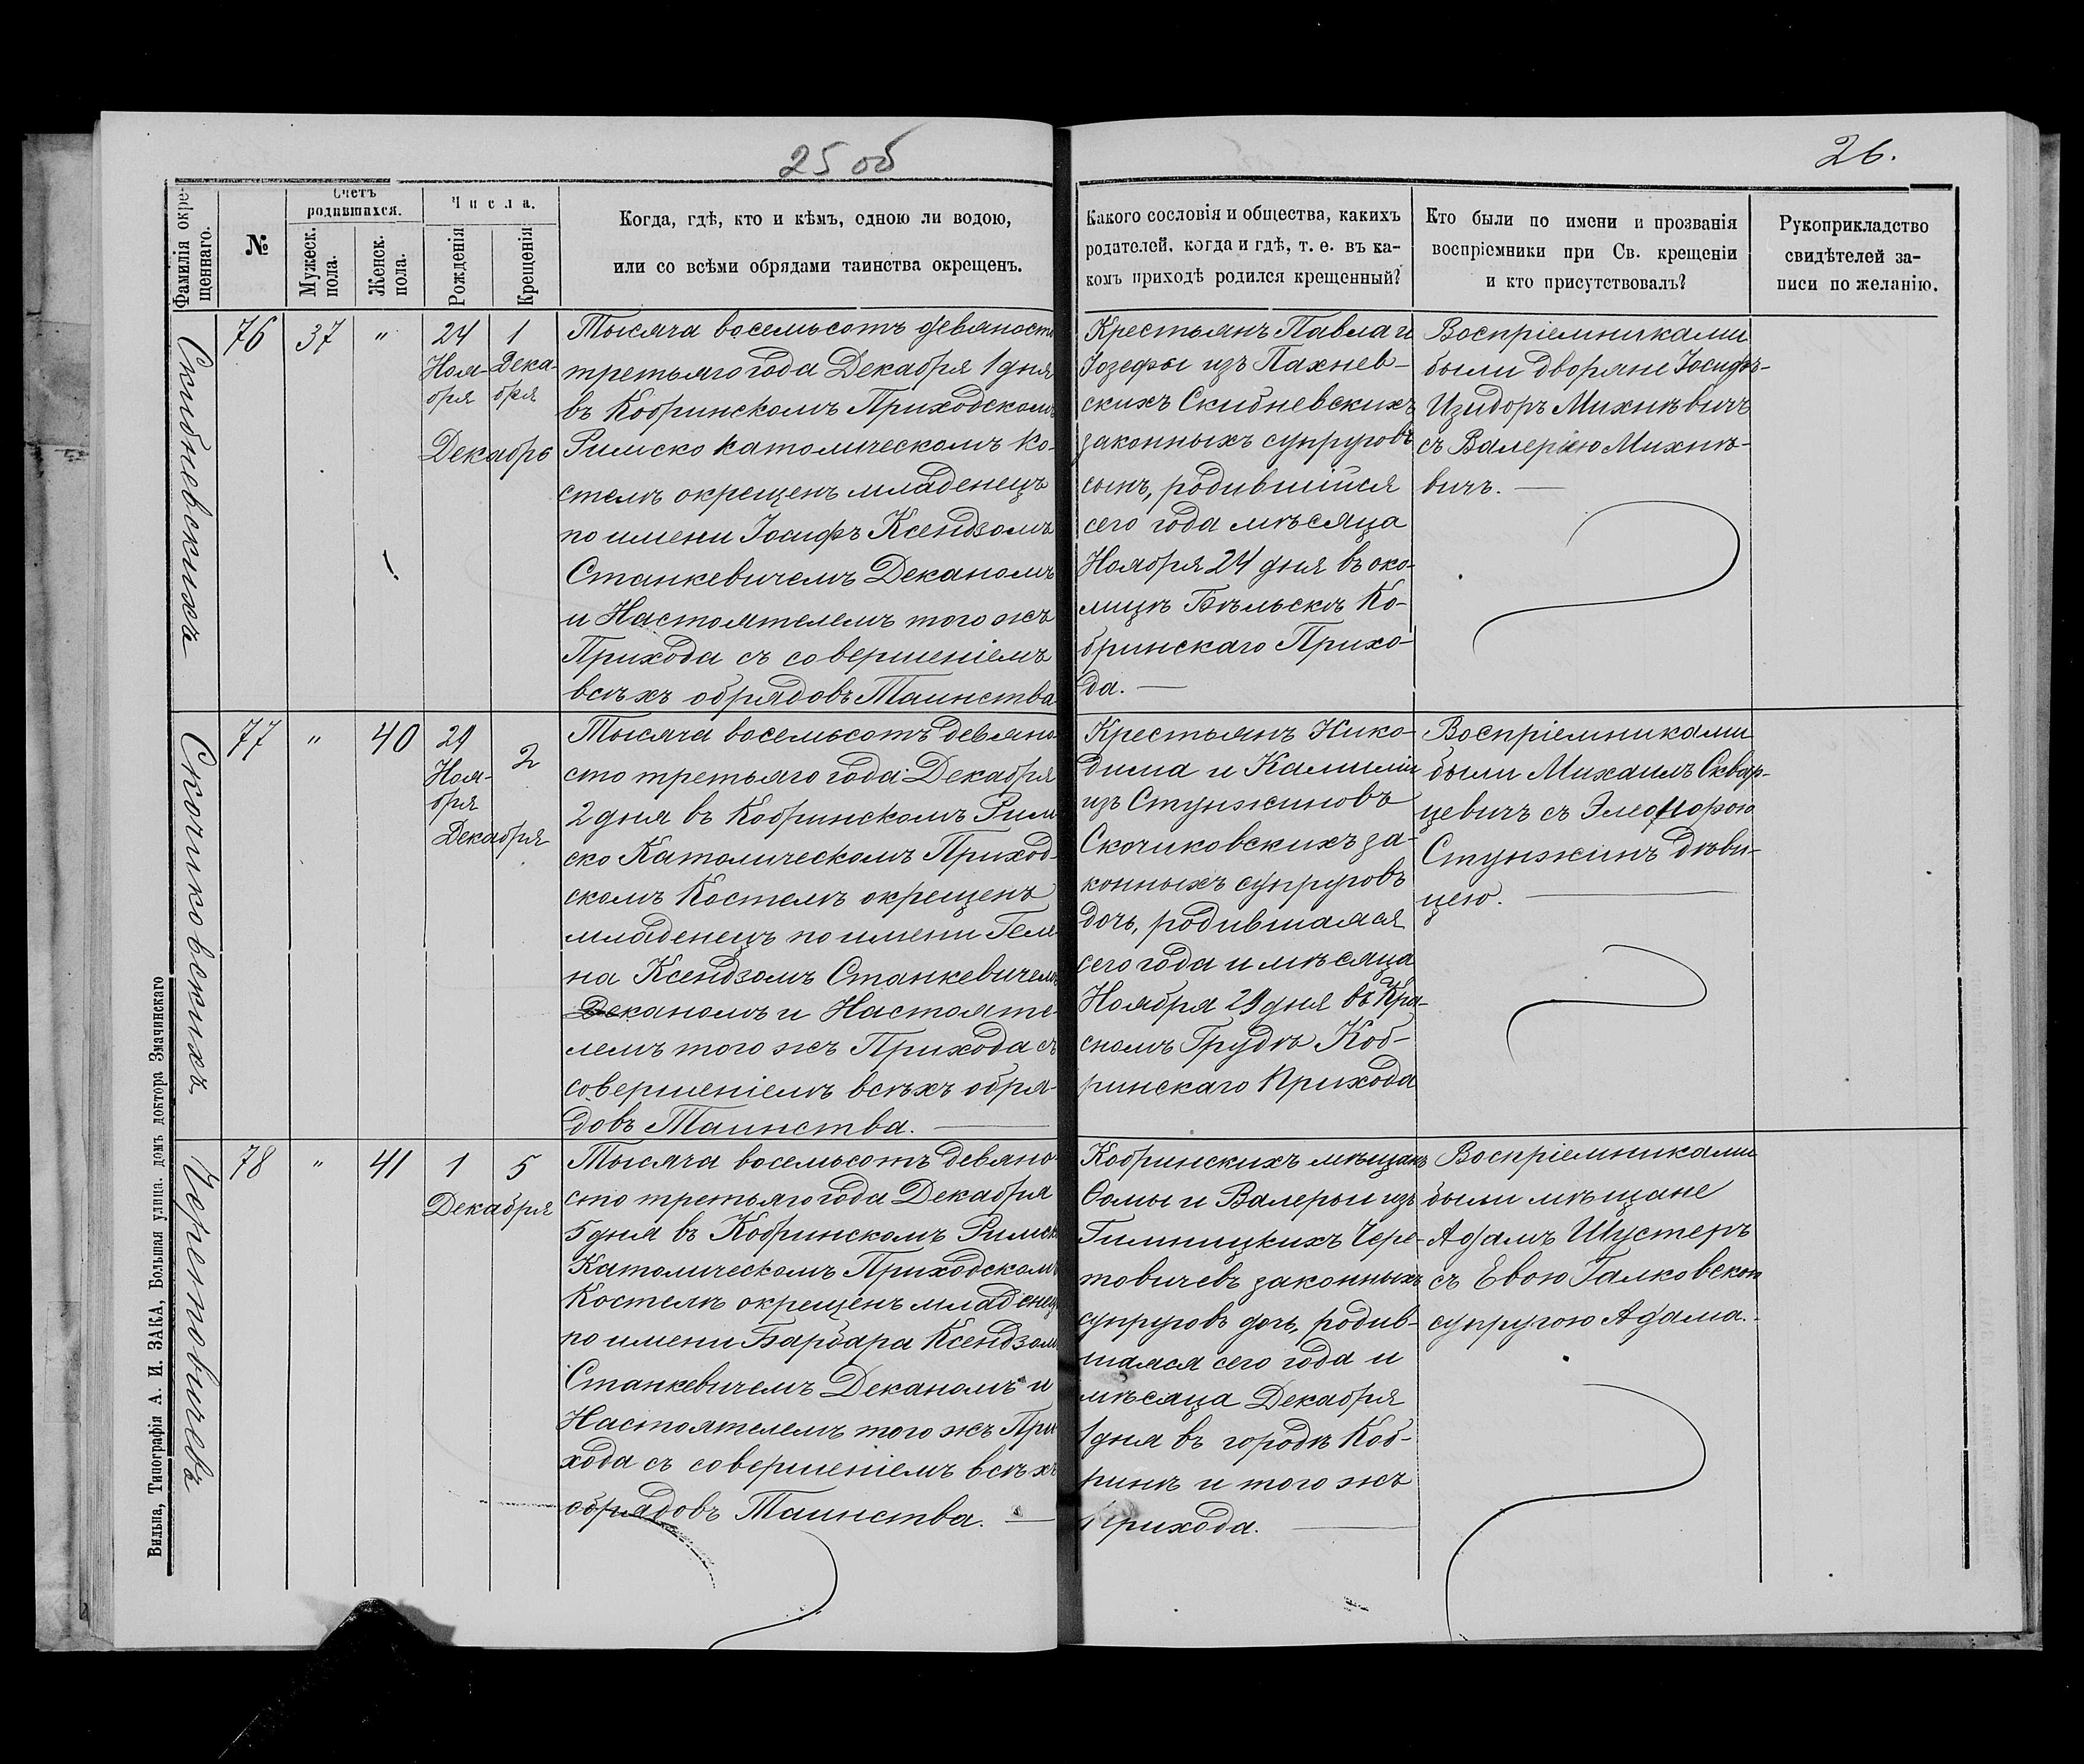 25 об
26.
Фамилія окре-
щеннаго.
№
Счетъ
родившихся.
Мужеск.
пола.
Женск.
пола.
Числа.
Рожденія
Крещенія
Когда, гдѣ, кто и кѣмъ, одною ли водою,
или со всѣми обрядами таинства окрещенъ.
Какого сословія и общества, какихъ
родителей, когда и гдѣ, т. е. въ ка-
комъ приходѣ родился крещенный?
Кто были по имени и прозванія
воспріемники при Св. крещеніи
и кто присутствовалъ?
Рукоприкладство
свидѣтелей за-
писи по желанію.
Скибневскихъ
76
37
"
24
Ноя-
бря
1
Дека-
бря
Декабрь
Тысяча восемьсотъ девяносто
третьяго года Декабря 1 дня
въ Кобринскомъ Приходскомъ
Римско Католическомъ Ко-
стелѣ окрещенъ младенецъ
по имени Іосифъ Ксендзомъ
Станкевичемъ Деканомъ
и Настоятелемъ того жъ
Прихода съ совершеніемъ
всѣхъ обрядовъ Таинства
Крестьянъ Павла и
Іозефы изъ Пахнев-
скихъ Скибневскихъ
законныхъ супруговъ
сынъ, родившійся
сего года мѣсяца
Ноября 24 дня въ око-
лицѣ Бѣльскъ Ко-
бринскаго Прихо-
да. —
Воспріемниками
были дворяне Іосифъ-
Изидоръ Михнѣвичъ
съ Валеріею Михнѣ-
вичъ. —
Скочиковскихъ
77
"
40
29
Ноя-
бря
2
Декабря
Тысяча восемьсотъ девяно-
сто третьяго года Декабря
2 дня въ Кобринскомъ Рим
ско Католическомъ Приход-
скомъ Костелѣ окрещенъ
младенецъ по имени Геле-
на Ксендзомъ Станкевичемъ
Деканомъ и Настояте-
лемъ того жъ Прихода съ
совершеніемъ всѣхъ обря-
довъ Таинства. —
Крестьянъ Нико-
дима и Камиліи
изъ Стунжиновъ
Скочиковскихъ за-
конныхъ супруговъ
дочь, родившаяся
сего года и мѣсяца
Ноября 29 дня въ Кра-
сномъ Грудкѣ Коб-
ринскаго Прихода
Воспріемниками
были Михаилъ Сквар-
цевичъ съ Элеонорою
Стунжинъ дѣви-
цею. —
Черетовичевъ
78
"
41
1
5
Декабря
Тысяча восемьсотъ девяно-
сто третьяго года Декабря
5 дня въ Кобринскомъ Римско
Католическомъ Приходскомъ
Костелѣ окрещенъ младенец
по имени Барбара Ксендзом
Станкевичемъ Деканомъ и
Настоятелемъ того жъ При
хода съ совершеніемъ всѣхъ
обрядовъ Таинства. —
Кобринскихъ мѣщанъ
Ѳомы и Валерьи изъ
Гимницкихъ Чере-
товичевъ законныхъ
супруговъ дочь, родив-
шаяся сего года и
мѣсяца Декабря
1 дня въ городѣ Коб-
ринѣ и того жъ
Прихода. —
Воспріемниками
были мѣщане
Адамъ Шустеръ
съ Евою Галковскою
супругою Адама.
Вильна, Типографія А. И. ЗАКА, Большая улица. домъ доктора Змачинскаго